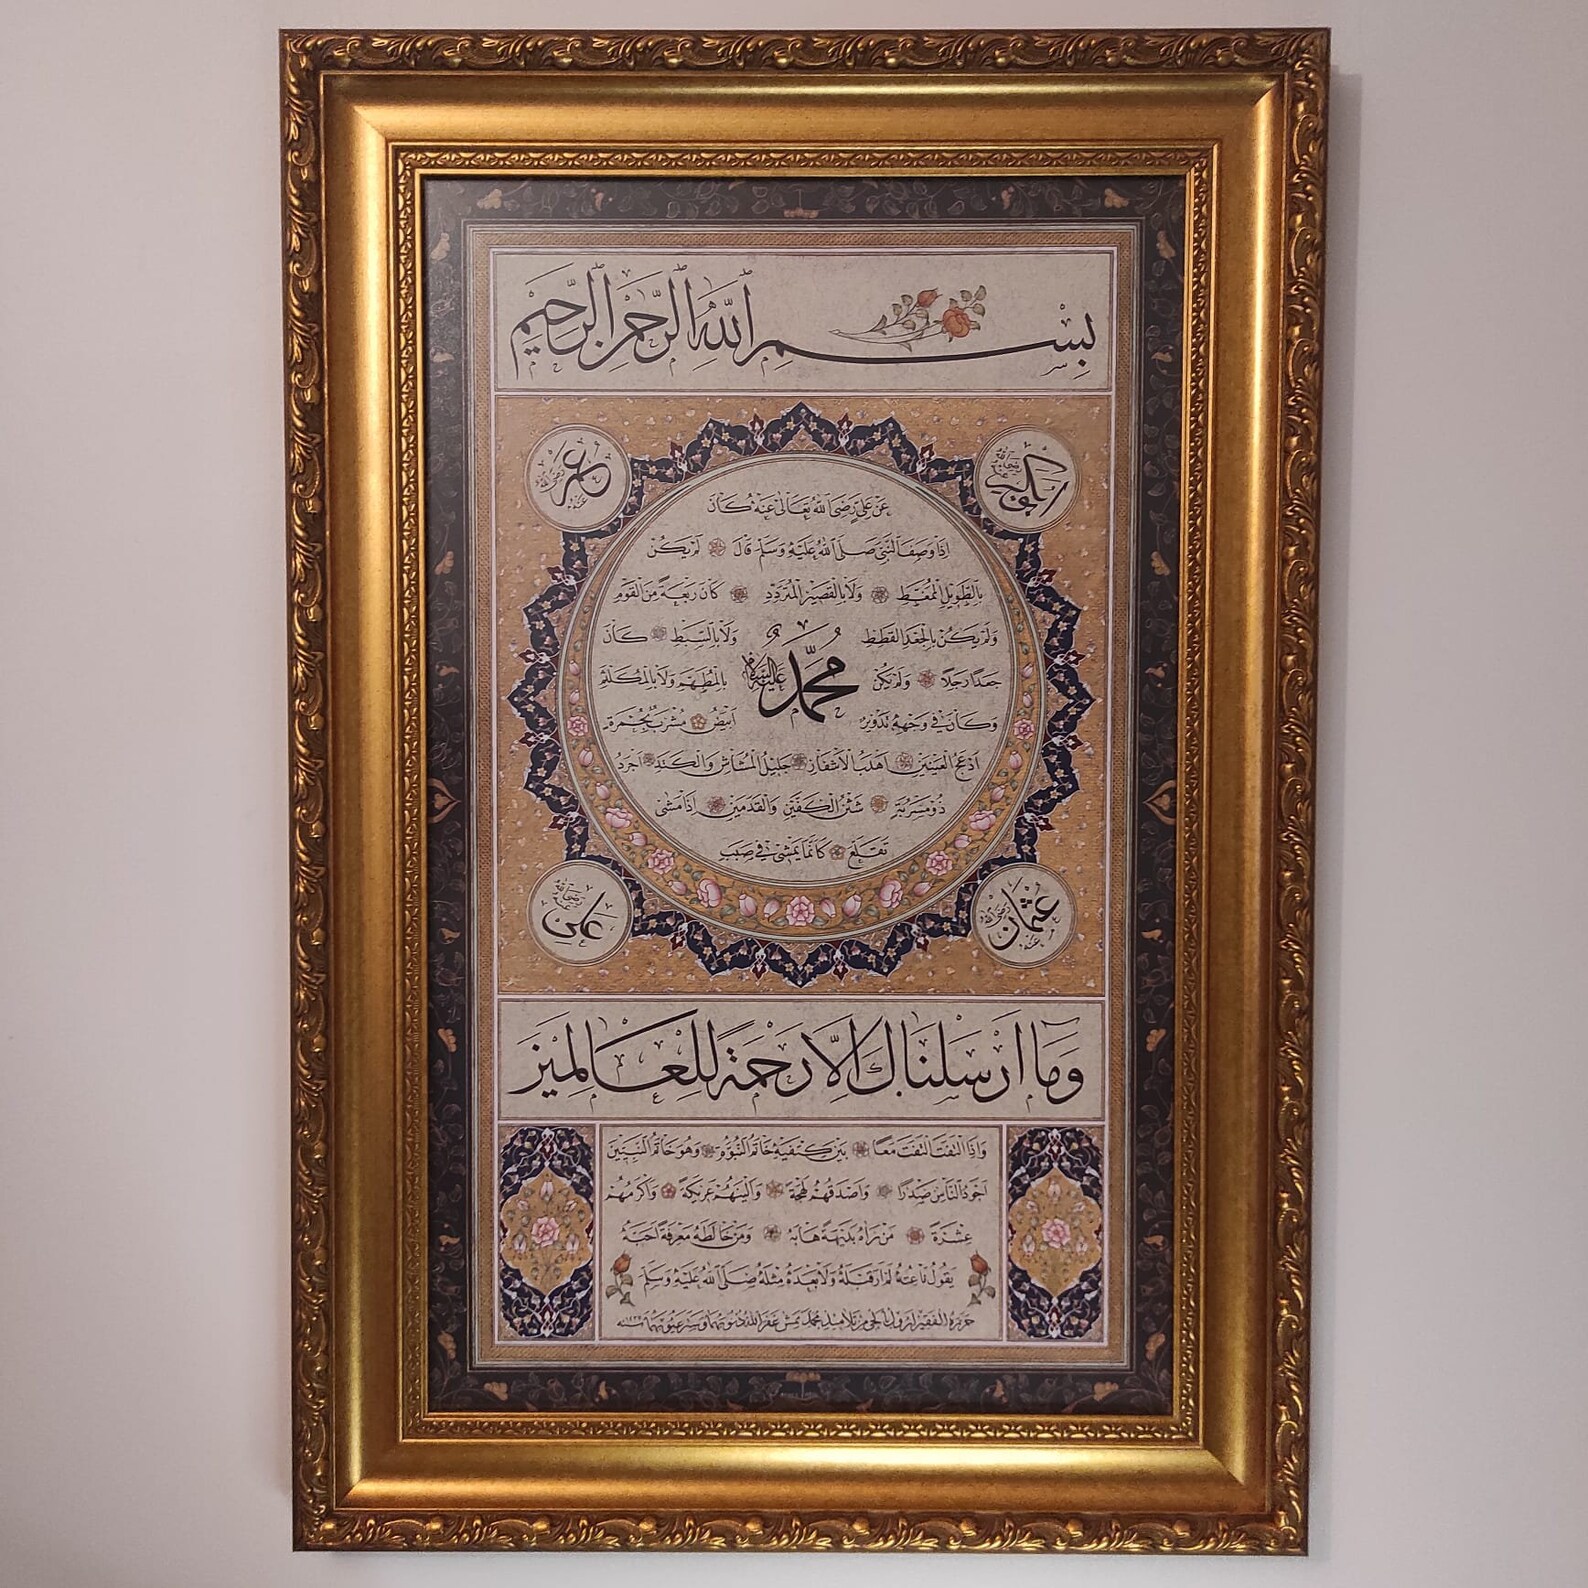 بِسْمِ اللّٰهِ الرَّحْمٰنِ الرَّحِيمِ
ابوبكر رضي الله عنه
عمر رضي الله عنه
عَنْ عَلِيٍّ رَضِيَ اللّٰهُ تَعَالٰى عَنْهُ كَانَ
اِذَا وَصَفَ النَّبِيَّ صَلَّى اللّٰهُ عَلَيْهِ وَسَلَّمَ قَالَ لَمْ يَكُنْ
بِالطَّوِيلِ الْمُمَّغِطِ وَلَا بِالْقَصِيرِ الْمُتَرَدِّدِ كَانَ رَبْعَةً مِنَ الْقَوْمِ
وَلَمْ يَكُنْ بِالْجَعْدِ الْقَطَطِ وَلَا بِالسَّبِطِ كَانَ
جَعْدًا رَجِلًا وَلَمْ يَكُنْ بِالْمُطَهَّمِ وَلَا بِالْمُكَلْثَمِ
مُحَمَّد عَلَيْهِ السَّلَام
وَكَانَ فِي وَجْهِهِ تَدْوِيرٌ اَبْيَضُ مُشْرَبٌ بِحُمْرَةٍ
اَدْعَجُ الْعَيْنَيْنِ اَهْدَبُ الْاَشْفَارِ جَلِيلُ الْمُشَاشِ وَالْكَتَدِ اَجْرَدُ
ذُو مَسْرُبَةٍ شَثْنُ الْكَفَّيْنِ وَالْقَدَمَيْنِ اِذَا مَشٰى
تَقَلَّعَ كَاَنَّمَا يَمْشِي فِي صَبَبٍ
عثمان رضي الله عنه
علي رضي الله عنه
وَمَا اَرْسَلْنَاكَ اِلَّا رَحْمَةً لِلْعَالَمِينَ
وَاِذَا الْتَفَتَ الْتَفَتَ مَعًا بَيْنَ كَتِفَيْهِ خَاتَمُ النُّبُوَّةِ وَهُوَ خَاتَمُ النَّبِيِّينَ
اَجْوَدُ النَّاسِ صَدْرًا وَاَصْدَقُهُمْ لَهْجَةً وَاَلْيَنُهُمْ عَرِيكَةً وَاَكْرَمُهُمْ
عِشْرَةً مَنْ رَاٰهُ بَدِيهَةً هَابَهُ وَمَنْ خَالَطَهُ مَعْرِفَةً اَحَبَّهُ
يَقُولُ نَاعِتُهُ لَمْ اَرَ قَبْلَهُ وَلَا بَعْدَهُ مِثْلَهُ صَلَّى اللّٰهُ عَلَيْهِ وَسَلَّمَ
حرره الفقير من تلاميذ محمد غفر الله ذنوبهما وستر عيوبهما سنه